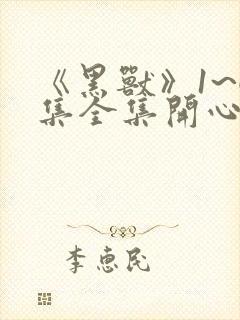 《黑獸》1~
集全集開心
李惠民